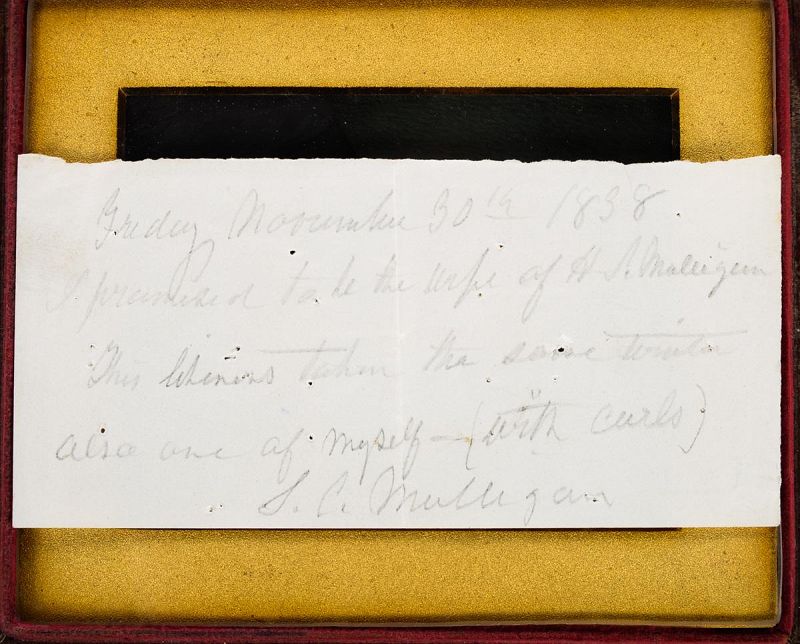 Friday November 30th 1838
I promised to be the wife of H S. Mulligan
This likeness taken the same winter
also one of myself — (with curls)
S. C. Mulligan